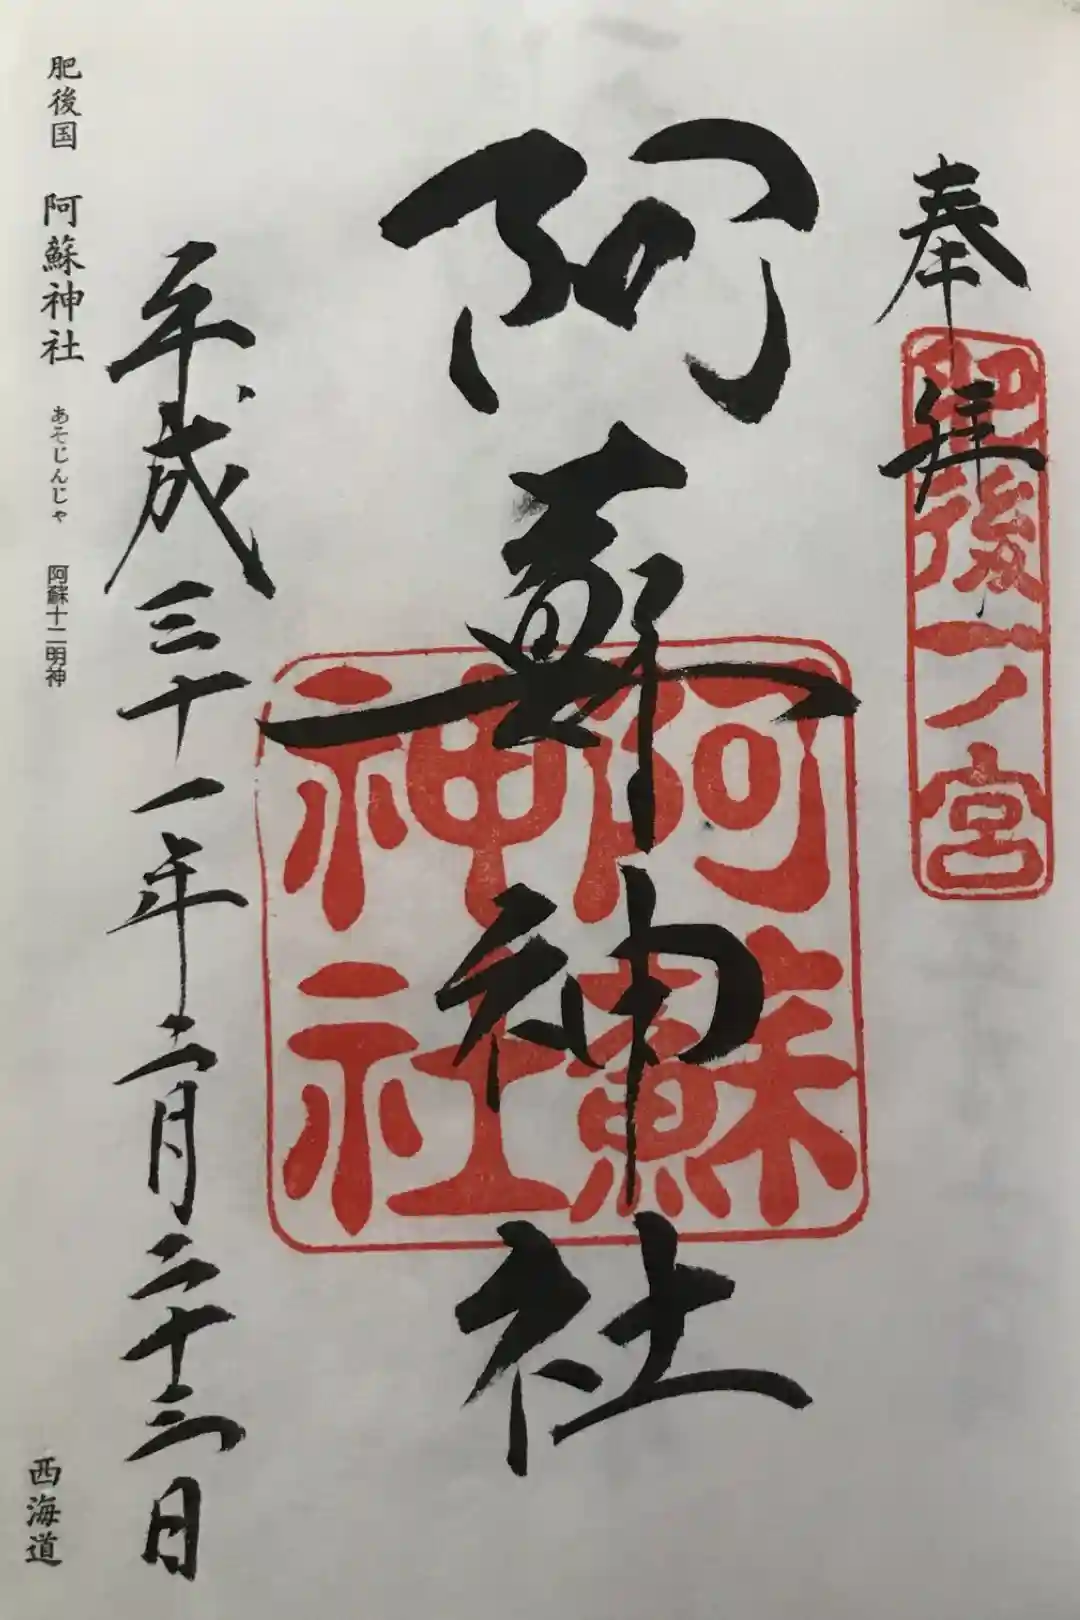 奉拝
肥後一ノ宮
阿蘇神社
阿蘇
神社
平成三十一年二月二十三日
肥後国 阿蘇神社 あそじんじゃ 阿蘇十二明神
西海道